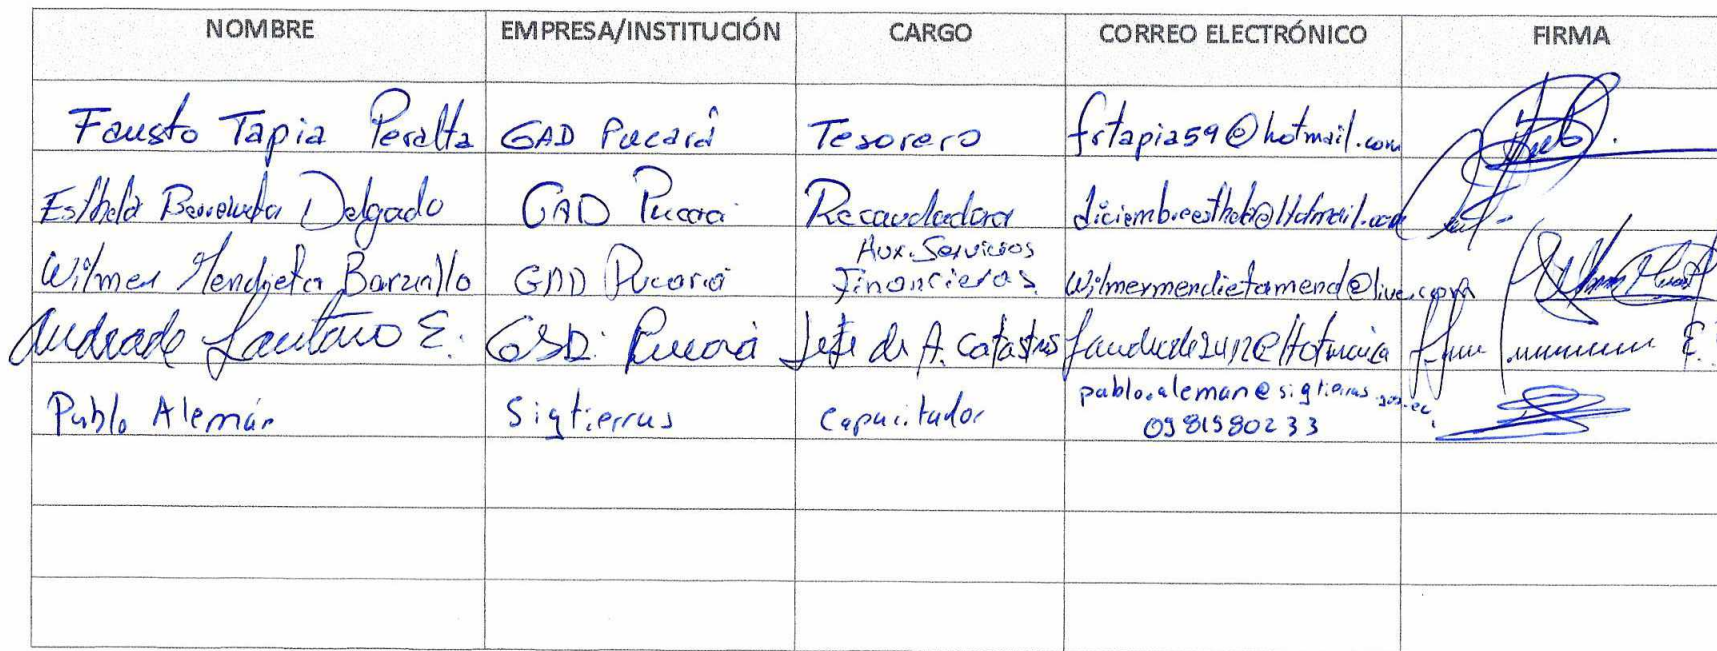 NOMBRE EMPRESA/INSTITUCIÓN CARGO CORREO ELECTRÓNICO FIRMA
Fausto Tapia Peralta GAD Pucará Tesorero frtapia59@hotmail.com
Delgado GAD Pucará Recaudadora
Wilmer Mendieta Barzallo GAD Pucará Aux. Servicios Financieros wilmermendietamend@live.com
Andrade Lautaro E. GAD. Pucará Jefe de A. Catastros
Pablo Alemán Sigtierras Capacitador pablo.aleman@sigtierras.gob.ec
0981980233